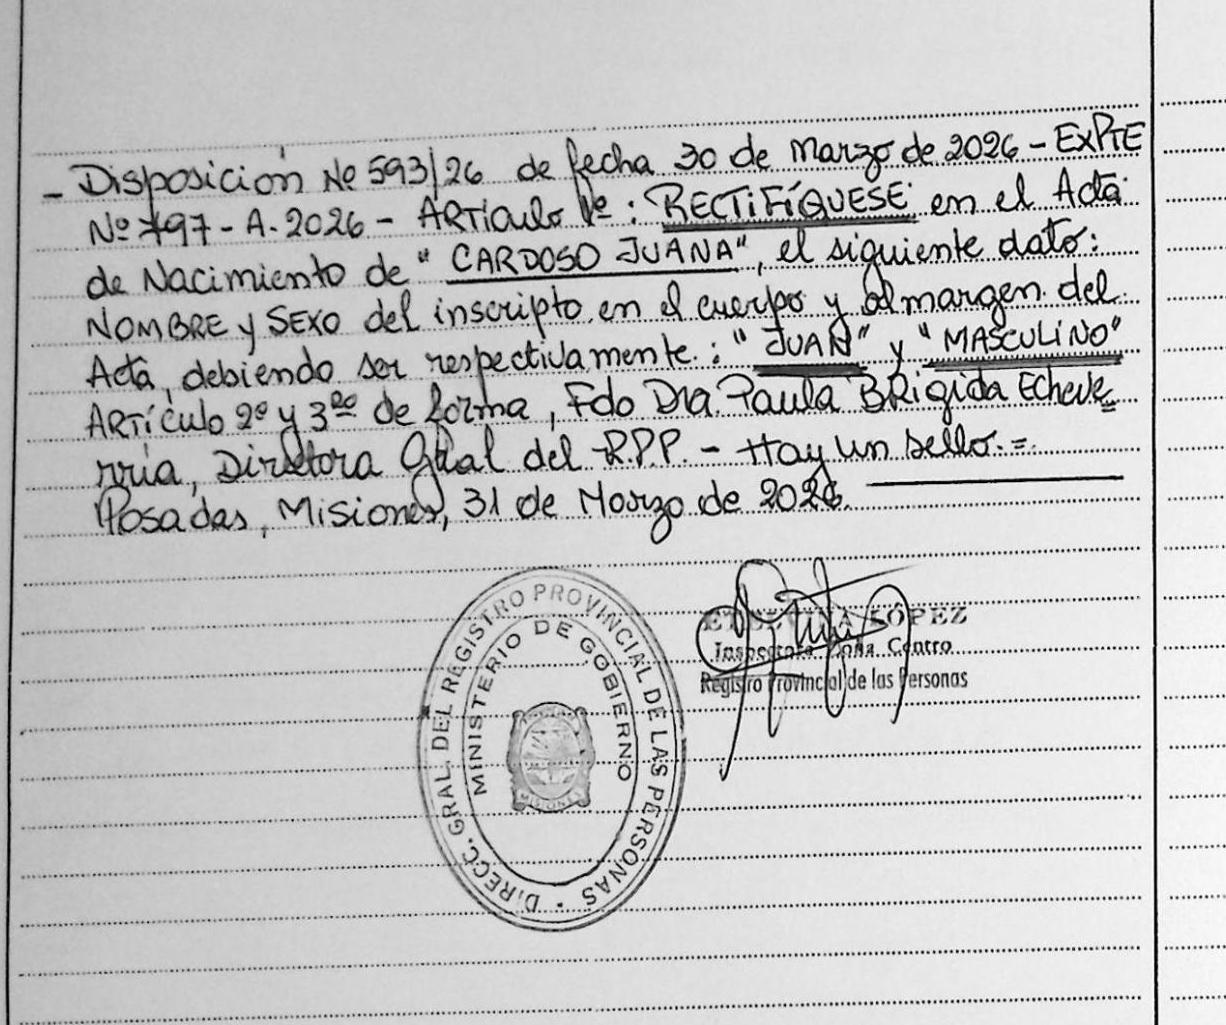 - Disposición Nº 593/26 de fecha 30 de Marzo de 2026 - EXPTE
Nº 797 - A. 2026 - ARTículo 1º : RECTIFÍQUESE en el Acta
de Nacimiento de " CARDOSO JUANA", el siguiente dato:
NOMBRE y SEXO del inscripto en el cuerpo y al margen del
Acta, debiendo ser respectivamente : "JUAN" y "MASCULINO"
ARTículo 2º y 3ro de forma, Fdo Dra. Paula BRigida Echeve=
rría, Directora Gral del R.P.P. - Hay un sello. =
Posadas, Misiones, 31 de Marzo de 2026.
DIRECC. GRAL. DEL REGISTRO PROVINCIAL DE LAS PERSONAS
MINISTERIO DE GOBIERNO
MISIONES
LÓPEZ
Inspectora Zona Centro
Registro Provincial de las Personas